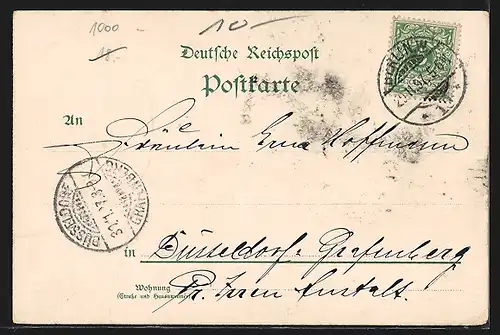 1000 -
10.-
18.-
Deutsche Reichspost
Postkarte
An
Fräulein Erna Hoffmann
in Düsseldorf-Grafenberg
Wohnung
(Straße und Hausnummer)
Pr. Irren Anstalt.
DÜSSELDORF-GRAFENBERG